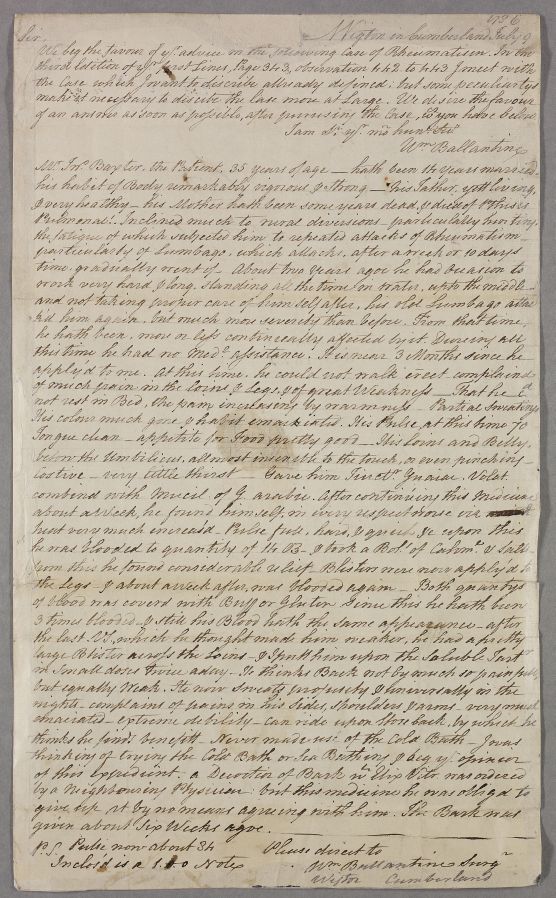 1786
Wigton in Cumberland July 9
Sir
We beg the favour of yr. advice in the following Case of Rheumatism. In the
third Edition of yr. first Lines, Page 343, observation 442 to 443 I meet with
the Case which I want to discribe allready defined: but some peculiaritys
makes it necessary to discribe the case more at Large. We desire the favour
of an answer as soon as posible, after perusing the Case, as you have below.
I am Sr. yr. mo. humle. Sert.
Wm. Ballantine
Mr. Jno. Bayter, the Patient, 35 years of age — hath been 14 years married
his habit of Body remarkably vigorous & strong — His Father, yett living,
& very healthy — his Mother hath been some years dead, & died of Phthisis
Pulmonal. Inclined much to rural diversions — particularly hunting,
the fatigue of which subjected him to repeated attacks of Rheumatism —
particularly of Lumbago, which attacks, after a week or 10 days
time, gradually went of — About two years agoe he had occasion to
work very hard & long, standing all the time in water, up to the middle —
and not taking proper care of himself after, his old Lumbago attac
k'd him again, but much more severely than before. From that time,
he hath been, more or less continually affected by it. During all
this time he had no Medl. assistance. It is near 3 Months since he
apply'd to me. At this time he could not walk erect complaind
of much pain in the Loins & Legs, & of great Weakness — That he cd.
not rest in Bed, the pain increasing by warmness — Partial Sweatings
His colour much gone, & habit emaciated. His Pulse, at this time 70
Tongue clean — appetite for Food pretty good — His Loins and Belly,
below the Umbilicus, allmost insensible to the touch, or even pinching —
costive — very little thirst — Gave him Tinct. Guaiac. Volat.
combined with Mucil of G. arabic. After continuing this Medicine
about a Week, he found himself, in every respect worse
heat very much increas'd Pulse full, hard, & quick, &c upon this
he was blooded to quantity of 14 & took a Bol. of Calomel &
from this he found considerable relief Blisters were now apply'd to
the Legs — & about a week after, was blooded again — Both quantitys
of blood was coverd with Buff or Gluten Since this he hath been
3 times blooded — & still his Blood hath the same appearance — after
the last, which he thought made him weaker, he had a pretty
large Blister across the Loins — & I putt him upon the Soluble Tartr.
in Small doses twice a day — He thinks Back not by much so painfull
but equally Weak. He now sweats profusely & universally in the
night — complains of pains in his Sides, Shoulders & arms — very much
emaciated — extreme debility — can ride upon Horse back, by which he
thinks he finds benefitt — Never made use of the Cold Bath — I was
thinking of trying the Cold Bath or Sea Bathing & beg yr. opinion
of this Expedient. a Decoction of Bark wt. Elix Vitr. was ordered
by a Neighbouring Physician but this medicine he was obliged to
give up it by no means agreeing with him. The Bark was
given about Six Weeks agoe.
P.S. Pulse now about 84
Please direct to
Inclosd is a £1..1..0 Note
Wm. Ballantine Surgn.
Wigton Cumberland